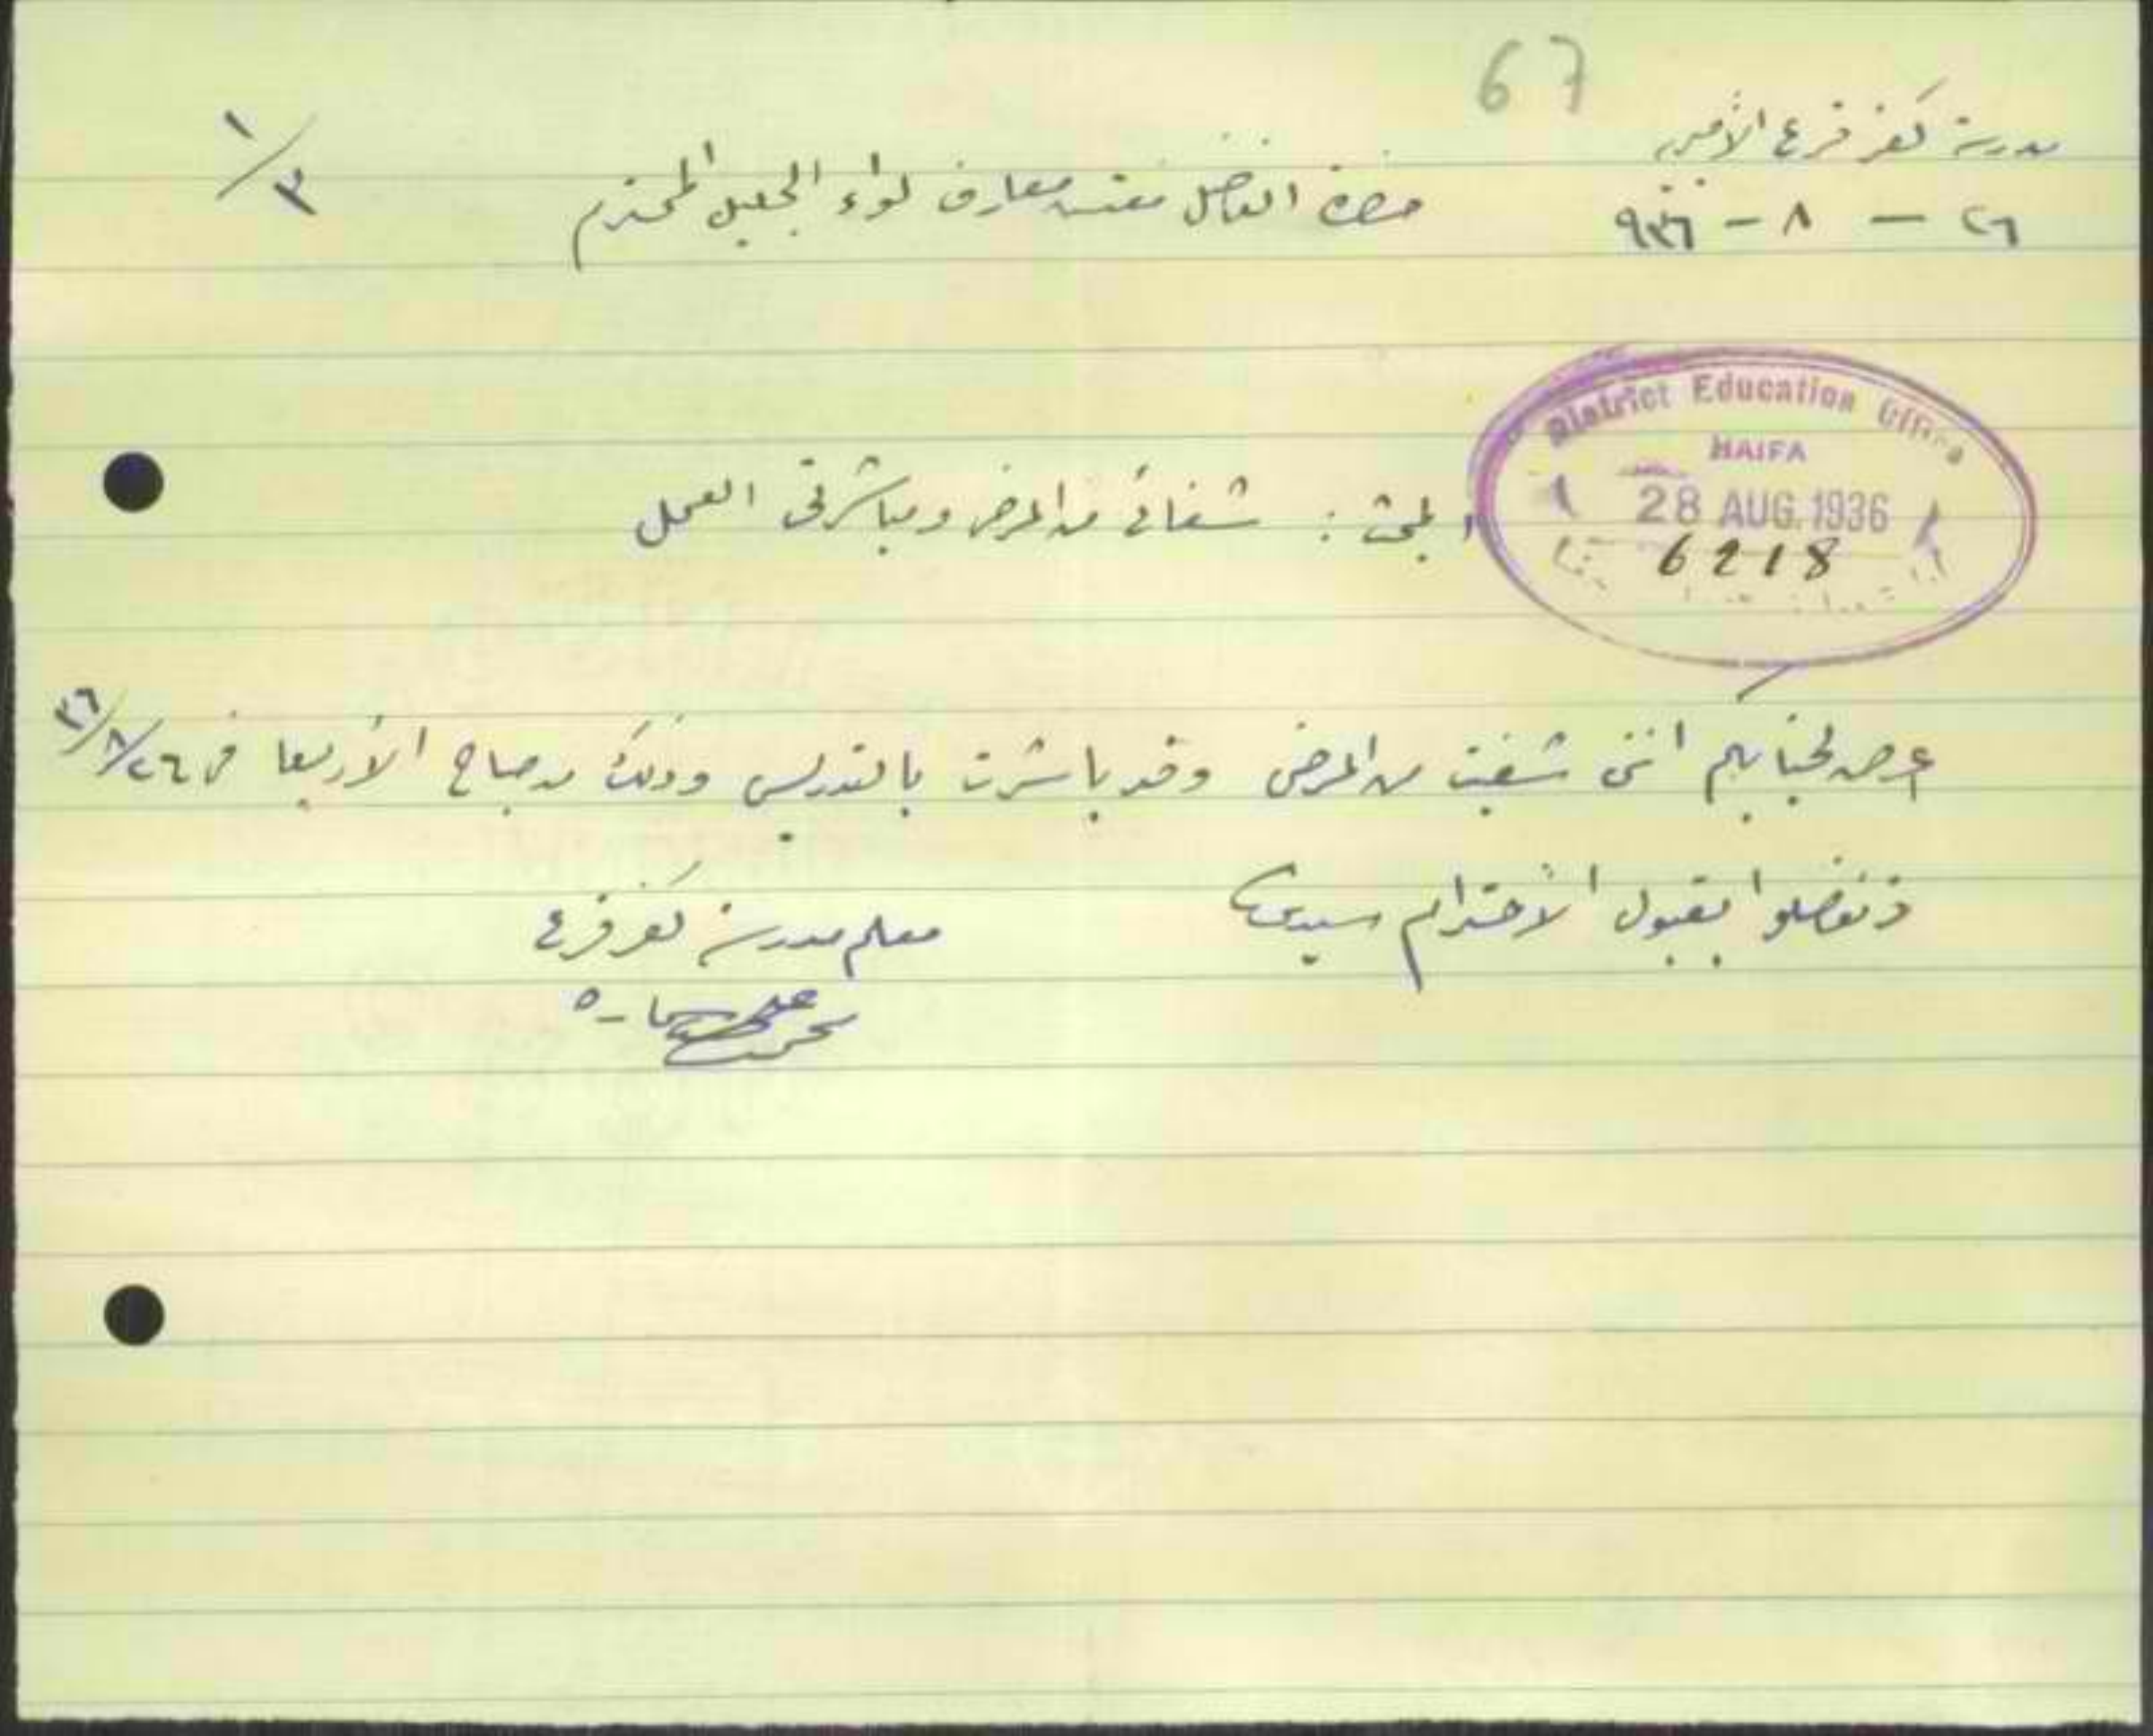 67
مدرسة كفر قرع الأميرية
٢٦ - ٨ - ٩٣٦
حضرة الفاضل مفتش معارف لواء الجليل المحترم
١/٣
District Education Office
HAIFA
28 AUG. 1936
6218
المبحث : شفائي من المرض ومباشرتي العمل
اعرض لجنابكم انني شفيت من المرض وقد باشرت بالتدريس وذلك من صباح الأربعا في ٢٦/٨/٣٦
وتفضلوا بقبول الأحترام سيدي
معلم مدرسة كفر قرع